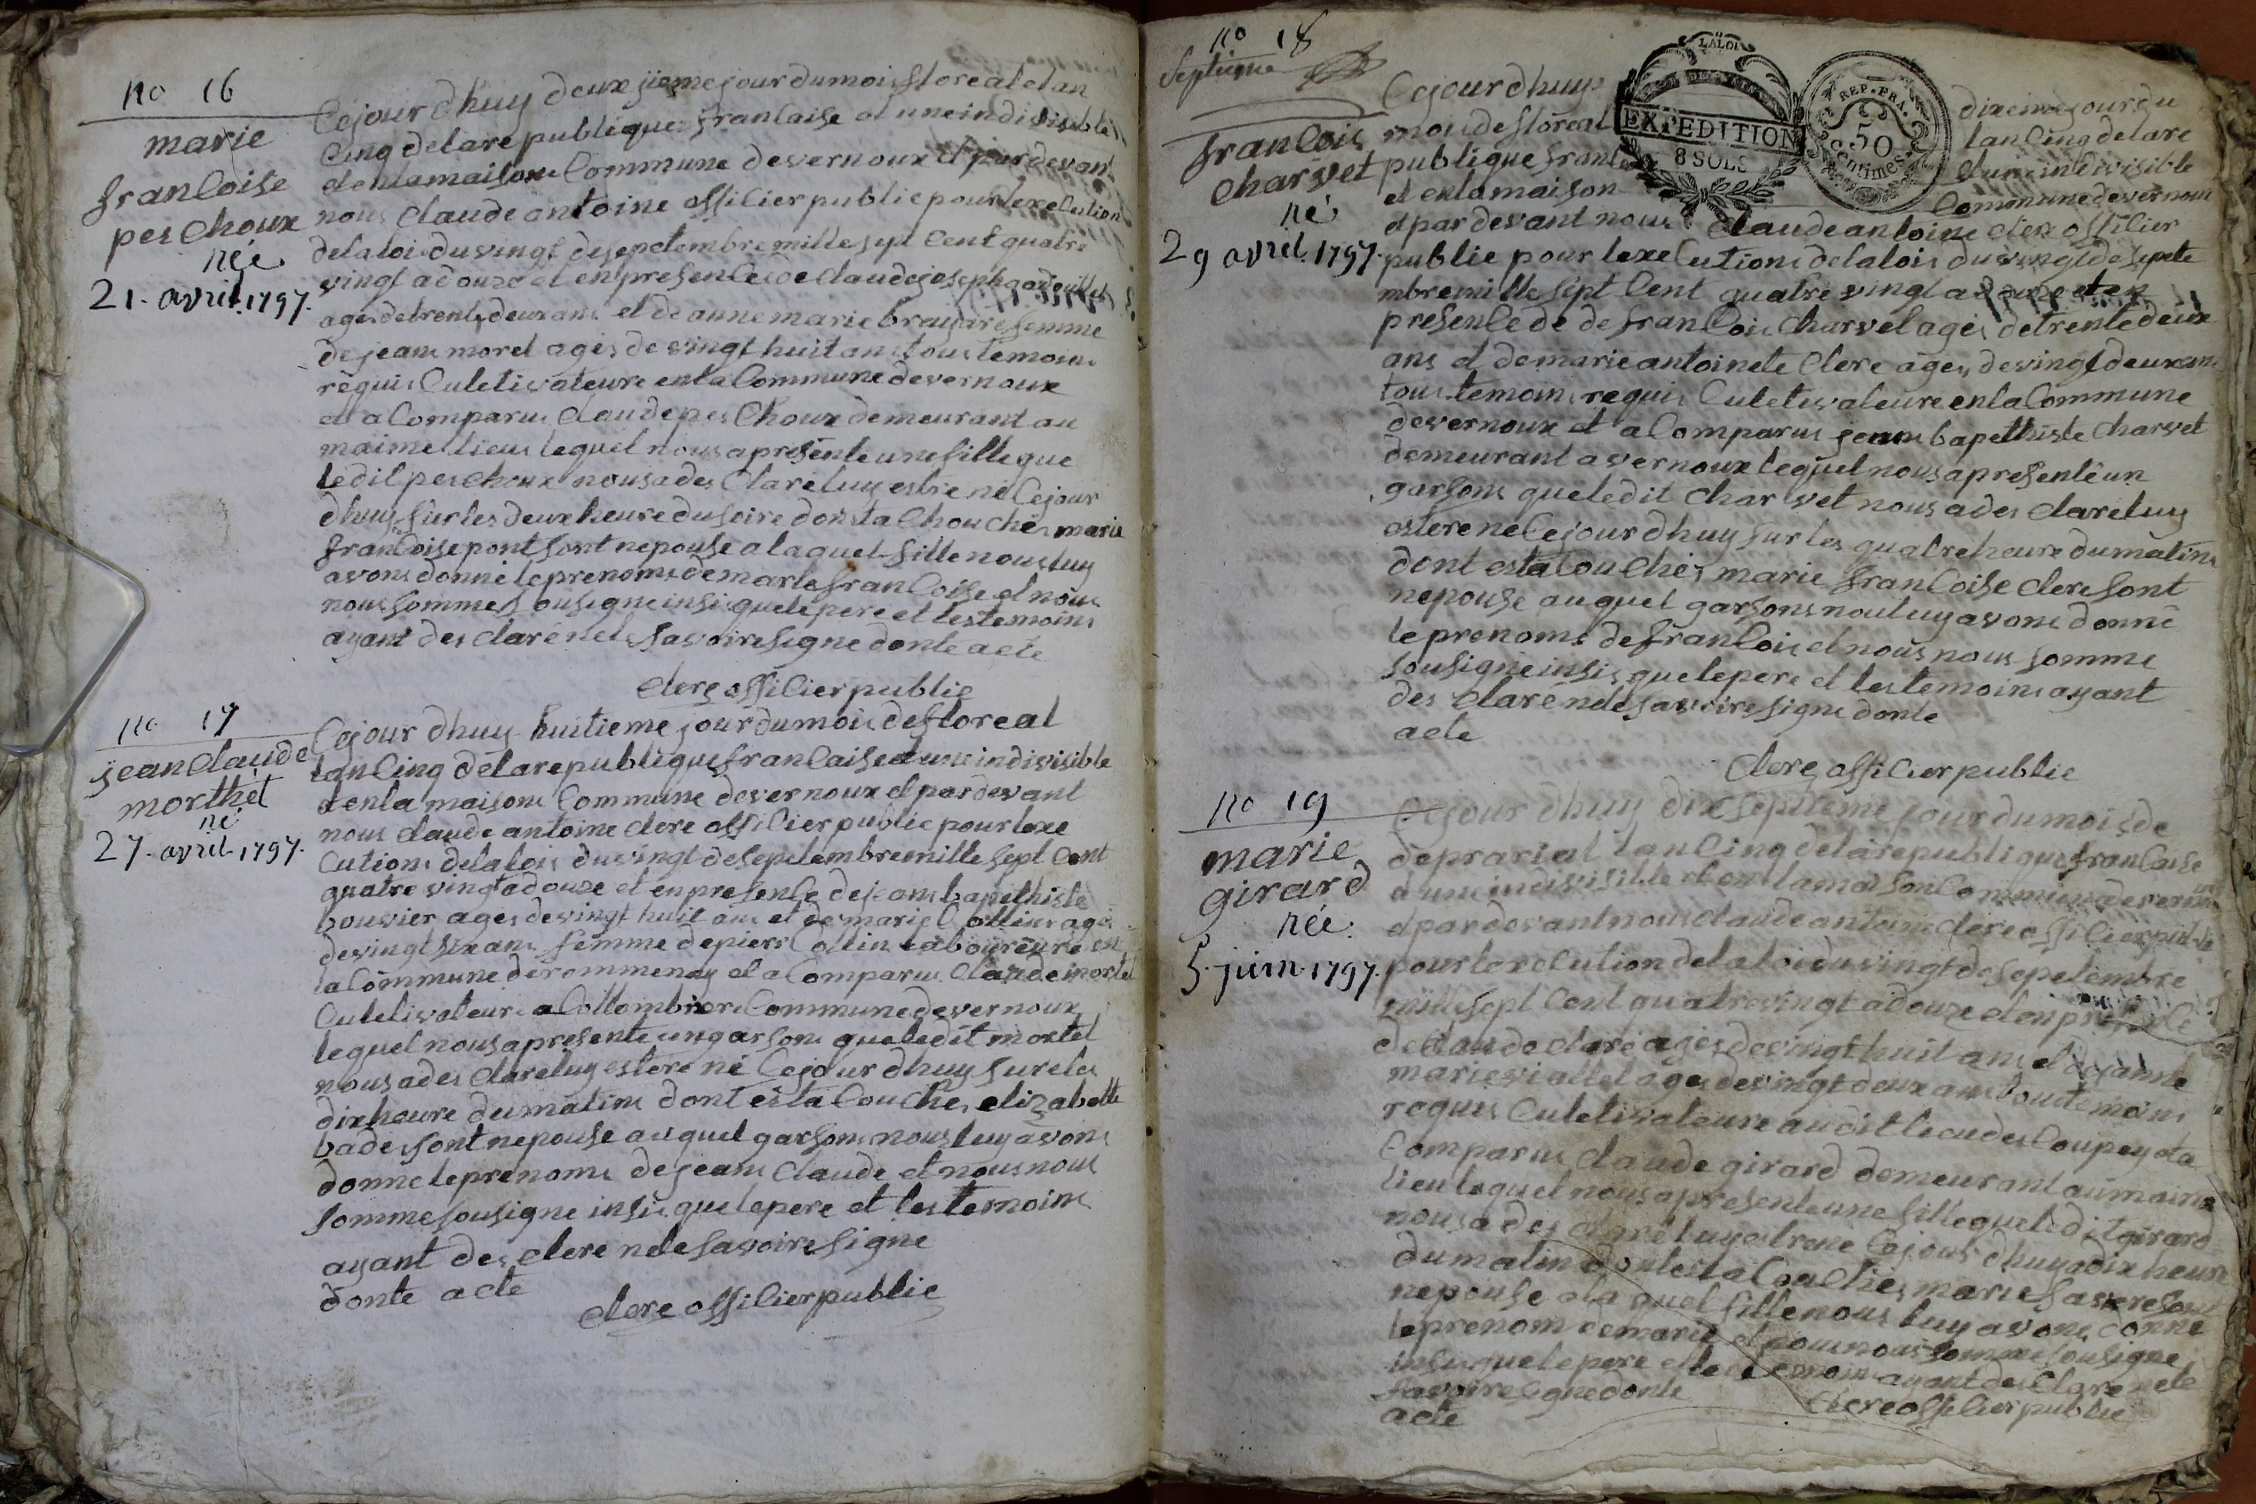 no 16
marie
francoise
peschoux
née
21. avril. 1797.
Cejour dhuy deuxjieme jour dumois floreal et an
Cinq delarepublique francaise et uneindivisible
et enlamaisone Commune devernoux et pardevan
nous Claude antoine officier public pour lexecution
delaloi duvingt desepctembre mille sept cent quatre
vingt adouze et enpresence de claudejoseph
ages detrente deux ans et de annemarie bruyere femme
de jeam morel ages de vingt huit ans tous temoins
requis Culetivateure enla Commune devernoux
et a Comparus Claude pes Choux demeurant au
maime lieu lequel nous apresente une fille que
ledit pes Choux nous a des Clare luy estre né Cejour
dhuy sur les deux heure dusoire dont sta Chouchés marie
francoise pont sont nepouse alaquel fille nous luy
avons donné leprenoms demarie francoise et nous
nous sommes sousigne insi quele pere et lestemoins
ayant des claré nele savoire signe donte acte
clere officier public
no 17
jean claude
morthet
né
27. avril. 1797.
Cejour dhuy huitieme jour dumois de floreal
lan Cinq delarepublique francaise et une indivisible
et enla maisone Commune devernoux et pardevant
nous claude antoine clere officier public pour lexe
Cutions delalois duvingt deseptembremille sept cent
quatre vingt adouze et enpresence dejeam bapethiste
bouvier ages devingt huit ans et demarie Collieur ages
devingt six ans femme depierr Collin laboureure en
la Commune derommenay et a Comparus Claude mortel
Culetivateure a Collombiere Commune devernoux
lequel nous apresente un garsons queledit mortel
nous ades clareluy estere né Cejour dhuy sureles
dix heure dumatins dont esta Couchés elizabette
bades sont nepouse auquel garsons nous luy avons
donne leprenoms dejeam Claude et nous nous
somme sousigne insi quelepere et lestemoins
ayant des clere nele savoire signe
donte acte
clere officier public
no 18
Septieme
francois
charvet
né
29 avril. 1797.
LA LOI
EXPEDITION
8 SOLS
REP. FRA.
50
centimes
Cejour dhuy dixieme jour du
mois de floreal lan Cinq delare
publique franc et une indivisible
et enlamaison Commune devernoux
et par devant nous claude antoine clere officier
public pour lexecutions delalois du vingt de septe
mbremille sept Cent quatre vingt adouze et en
presence de de francois Charvet ages detrentedeux
ans et de marie antoinete Clere ages devingt deux ans
tous temoins requis Culetivateure enla Commune
devernoux et a Comparus jeam bapethiste Charvet
demeurant a vernoux lequel nous apresenté un
garsons queledit Charvet nous a des clareluy
estere ne Cejour dhuy sur les quatre heure dumatins
dont esta Couchés marie francoise clere sont
nepouse auquel garsons nouluy avons donné
le prenoms defrancois et nous nous somme
sousigne insis quelepere et lestemoins ayant
des claré nele savoire signe donte
acte
clere officier public
no 19
marie
girard
née
5. juin. 1797.
Cejour dhuy dix septieme jour dumois de
deprarial lan Cinq delarepublique francaise
et une indivisible et en lamaison Commune devernoux
et par devant nous claude antoine clere officier public
pour lexecution delaloi duvingt desepetembre
mille sept Cent quatre vingt adouze et enpresence
declaude claré ages devingt huit ans et dejanne
marie viallet ages devingt deux ans tous temoins
requis Culetivateure audit lieu des Coupey et a
Comparus claude girard demeurant au maime
lieu lequel nous apresente une fille queledit girard
nous a des claré luy estrene Cejour dhuy a dix heure
du matin dontesta Couchés marie favre sont
nepouse ala quel fille nous luy avons donne
leprenom demarie et nous nous somme sousigne
insi quelepere et lestemoins ayant des Clare nele
savoire signe donte
acte
clere officier public